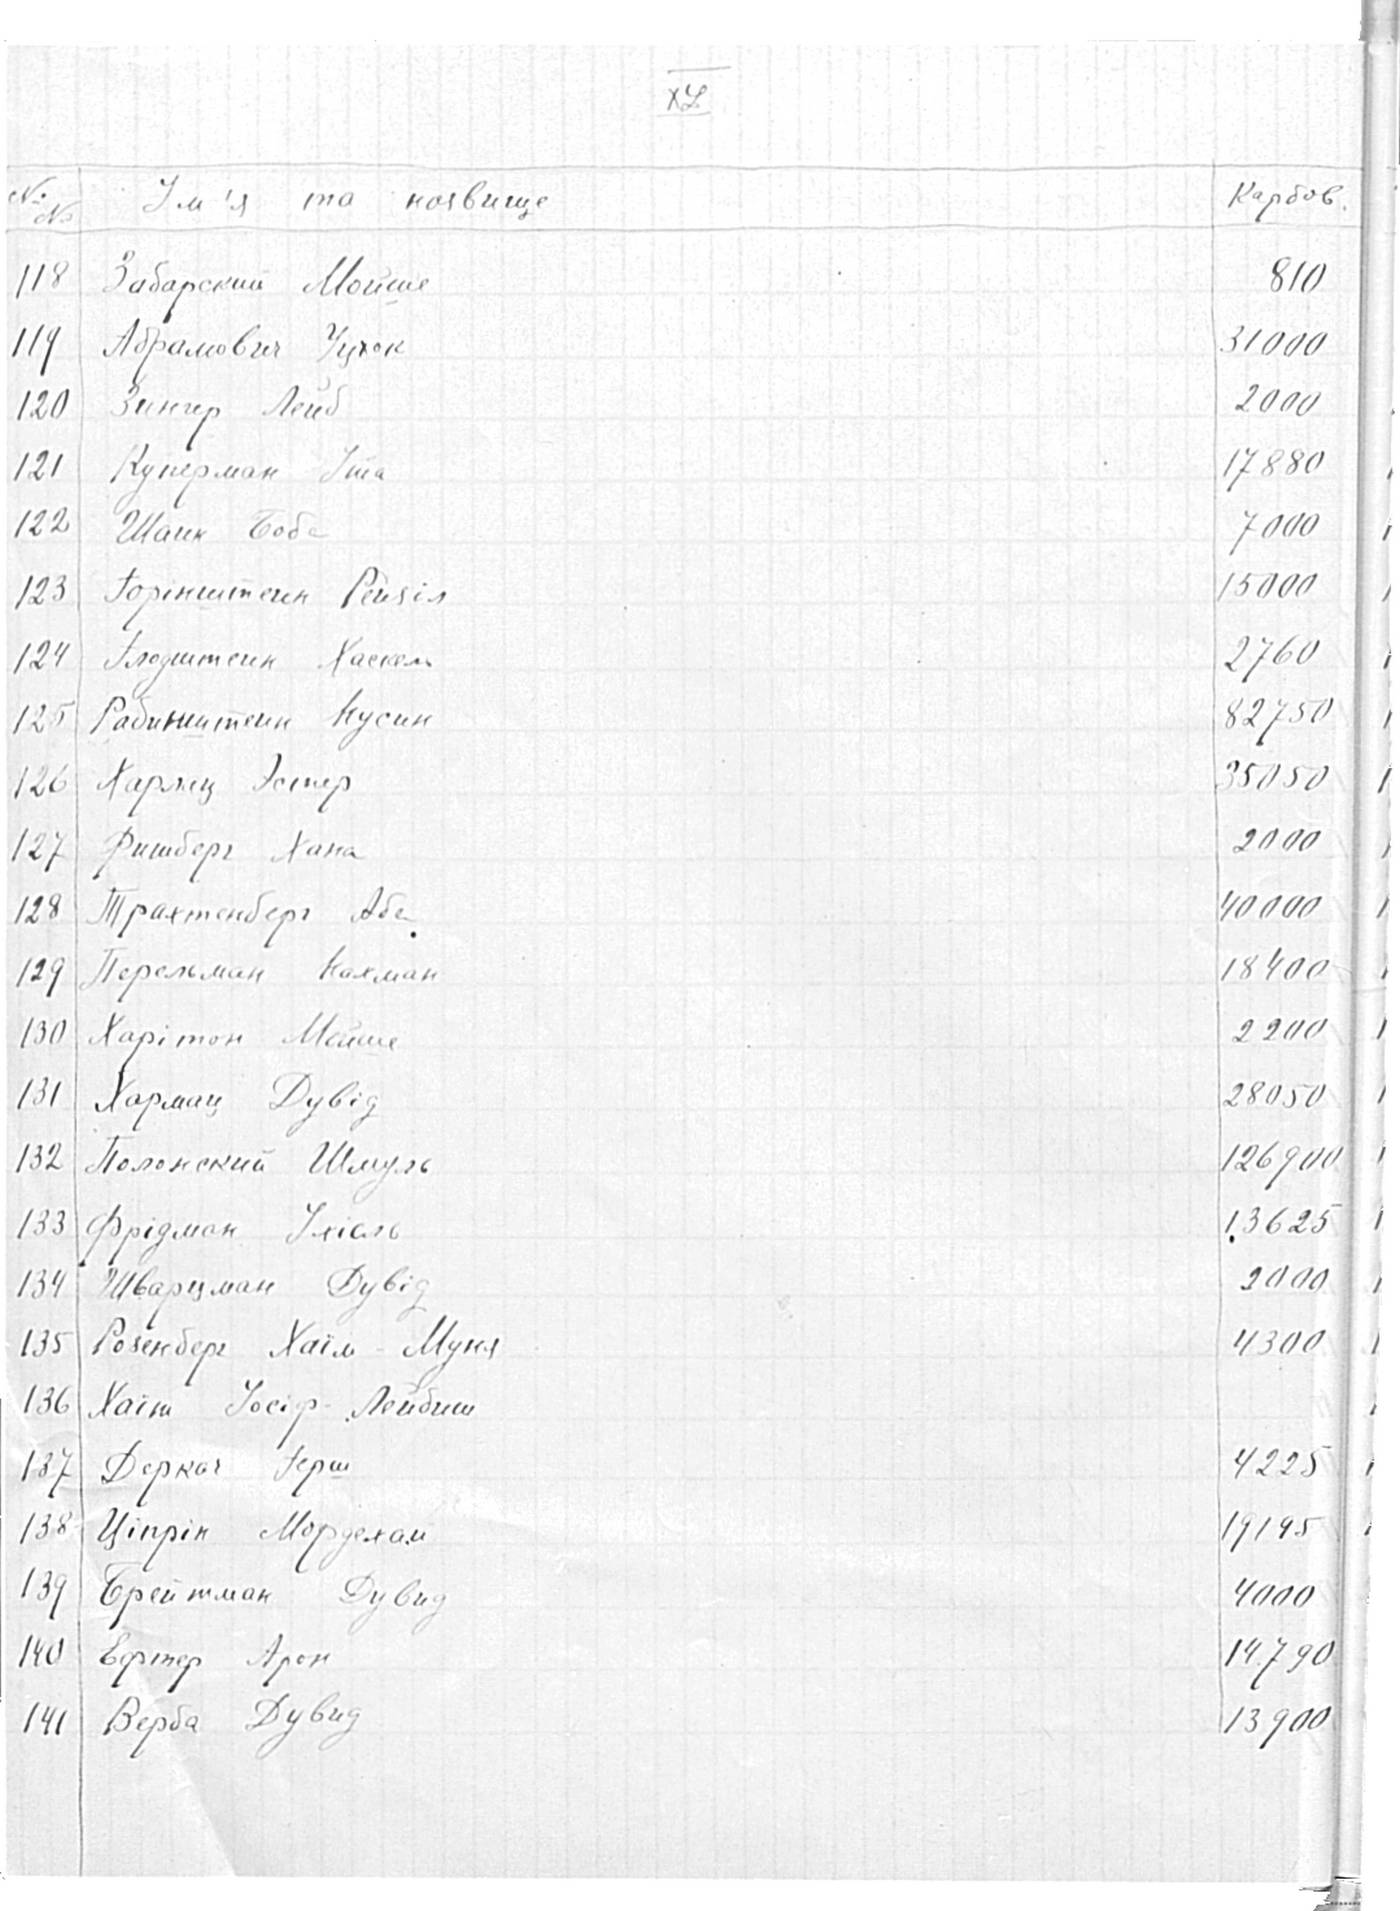 XL
№ № Ім'я та назвище Карбов.
118 Забарский Мойше 810
119 Абрамович Іцхок 31000
120 Зингер Лейб 2000
121 Куперман Іта 17880
122 Шаин Боба 7000
123 Горінштеин Рейзіл 15000
124 Глодштеин Хаскель 2760
125 Рабинштеин Нусин 82750
126 Хармц Эстер 35050
127 Фишберг Хана 2000
128 Трахтенберг Аба 40000
129 Перельман Нахман 18400
130 Харітон Мойше 2200
131 Хармац Дувід 28050
132 Полонский Шмуль 126900
133 Фрідман Іхіель 13625
134 Шварцман Дувід 2000
135 Розенберг Хаїм - Муня 4300
136 Хаїт Іосіф - Лейбиш
137 Деркач Герш 4225
138 Ціпрін Мордехай 19195
139 Брейтман Дувид 4000
140 Ефтер Арон 14.790
141 Верба Дувид 13900